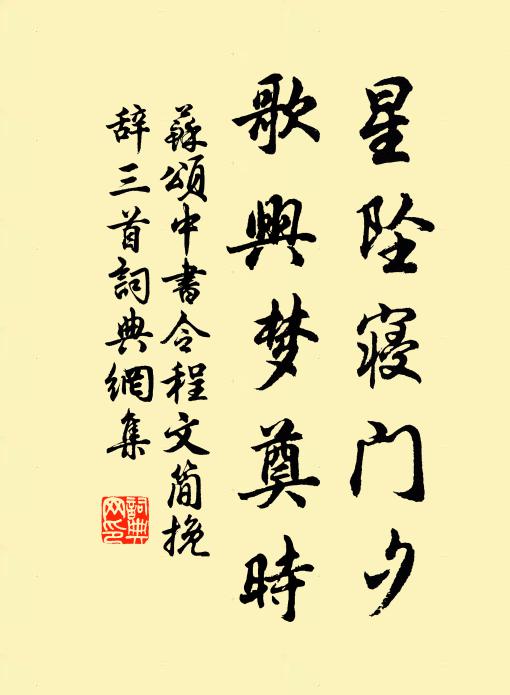 星坠寝门夕
歌興梦奠時
蘇頌中書令程文简挽
辞三首詞典網集
詞典网印